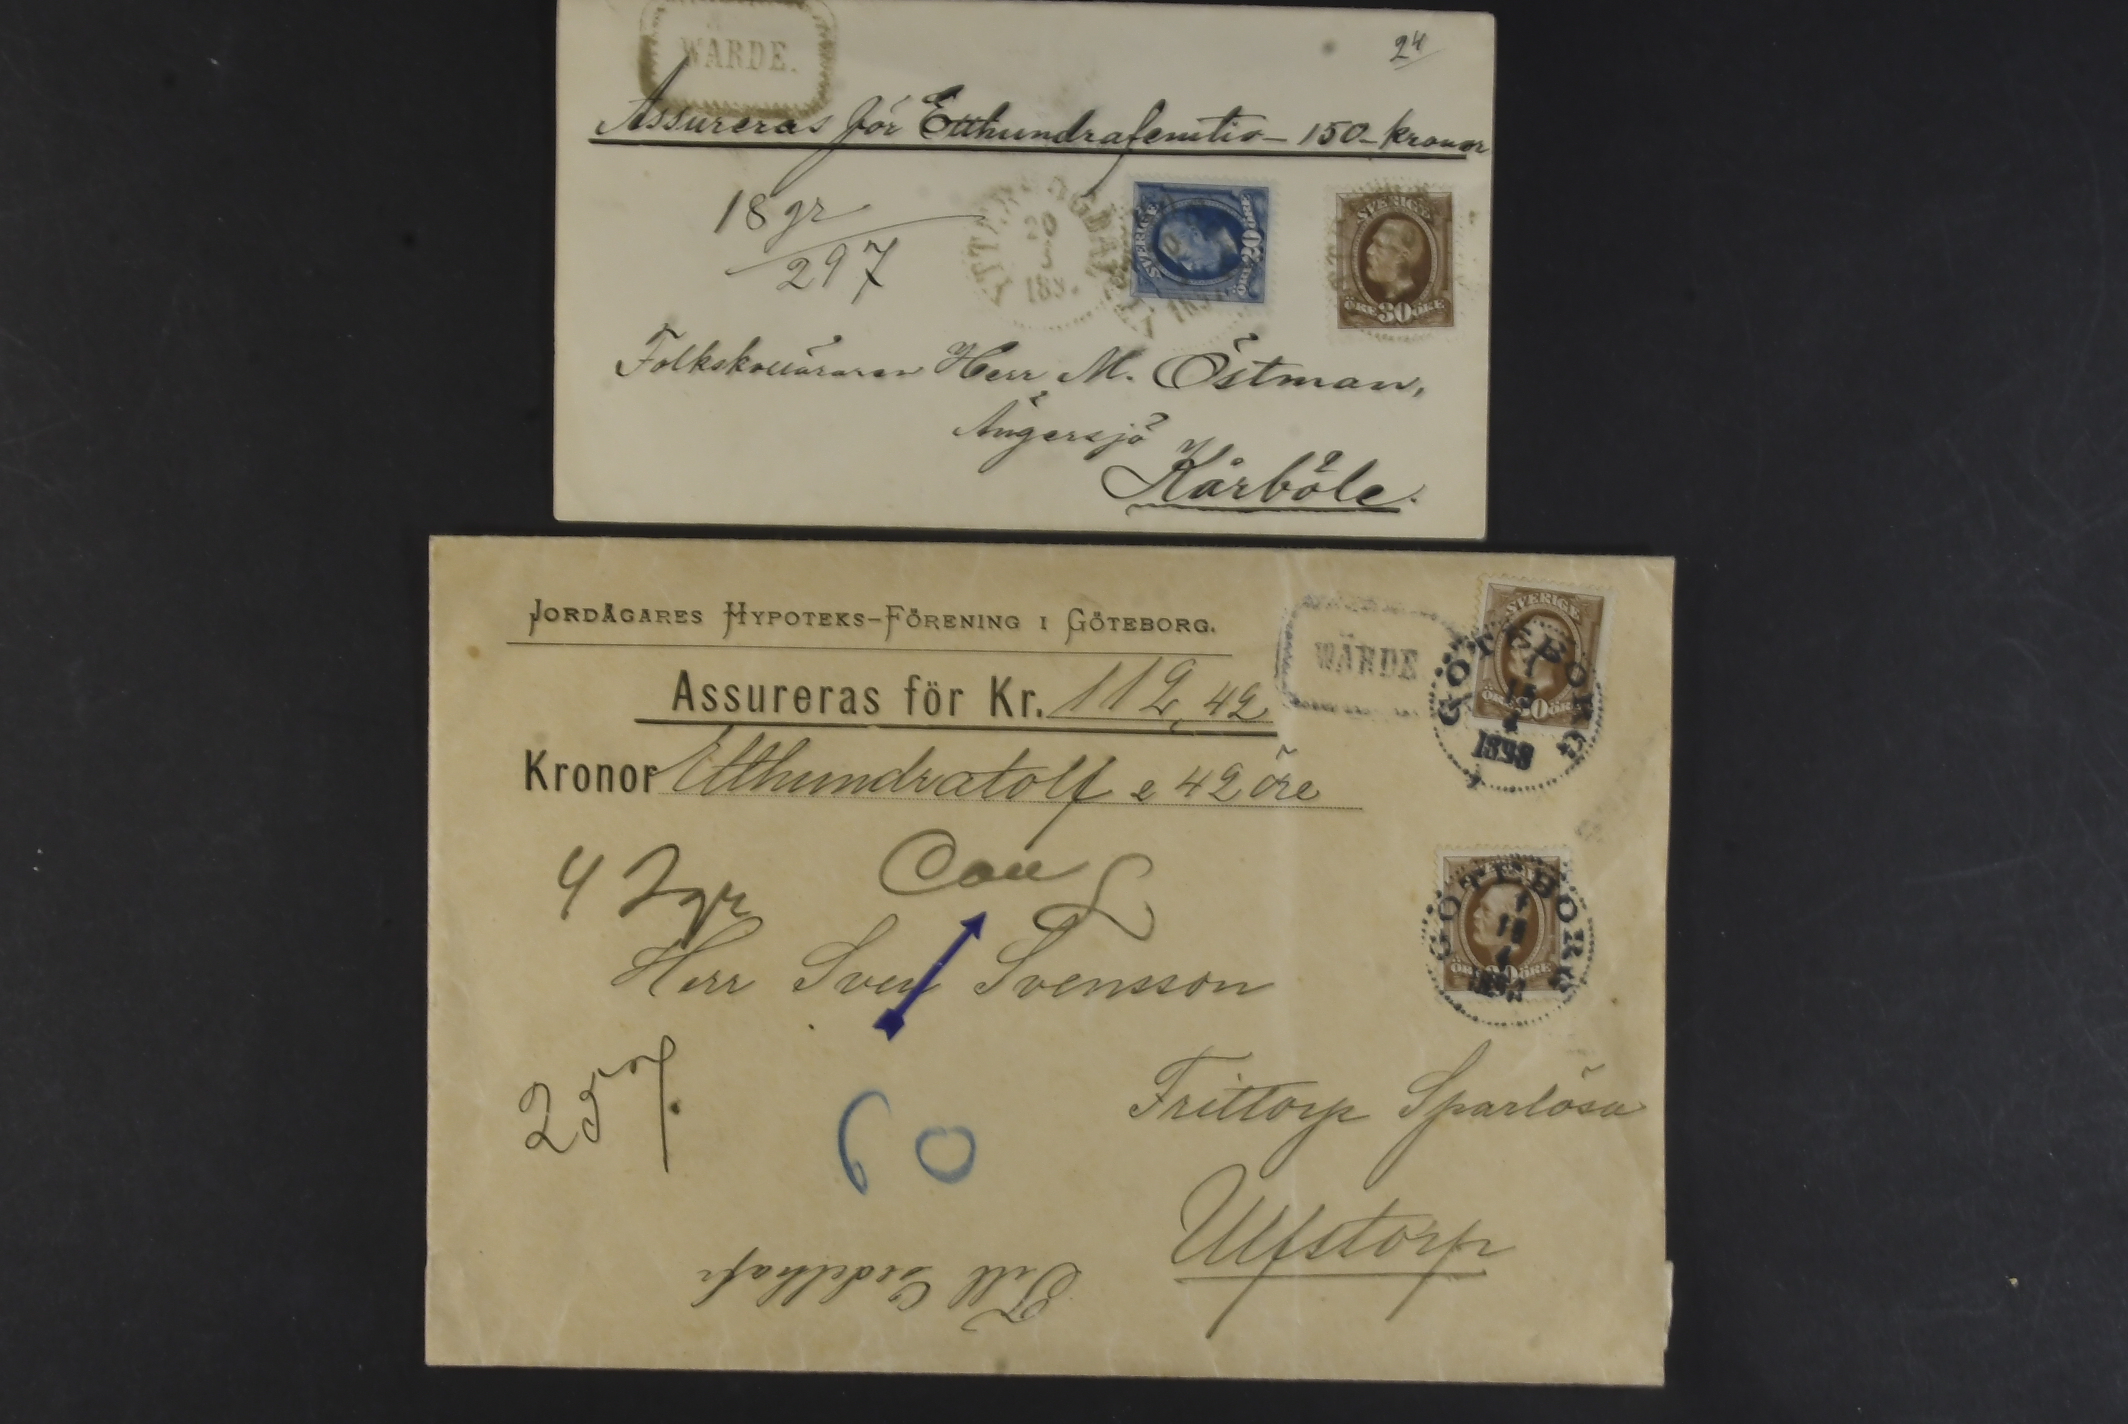 WÄRDE.
24
Assureras för Etthundrafemtio - 150 - kronor
18 gr
297
20
189
SVERIGE
ÖRE 20 ÖRE
SVERIGE
ÖRE 30 ÖRE
Folkskolläraren Herr M. Östman,
Ängersjö
Kårböle.
JORDÄGARES HYPOTEKS-FÖRENING I GÖTEBORG.
WÄRDE
SVERIGE
GÖTEBORG
1898
Assureras för Kr. 112,42
Kronor Etthundratolf e 42 öre
42 gr
GÖTEBORG
Herr Sven Svensson
257
60
Frittorp Sparlösa
Ulfstorp
Till